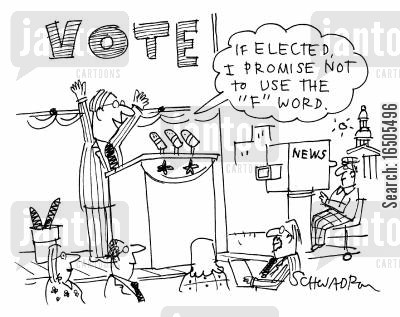 VOTE
IF ELECTED,
I PROMISE NOT
TO USE THE
"F" WORD.
NEWS
SCHWADRON
jantoo
CARTOONS
Search: 16505496